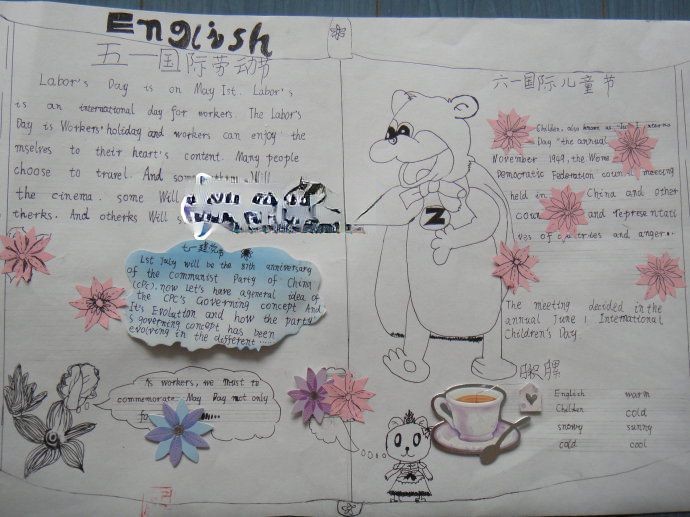 English
五一国际劳动节
Labor's Day is on May 1st. Labor's
is an international day for workers. The Labor's
Day is Workers' holiday and workers can enjoy the
mselves to their heart's content. Many people
choose to travel. And some Will
the cinema. some Will
therks. And otherks Will
七一建党节
1st July will be the 87th anniversary
of the Communist Party of China
(CPC). now let's have ageneral idea of
the CPC's Governing concept And
It's Evolution and how the party'
s governing concept has been
evolving in the different ....
As workers, we must to
commemorate May Day not only
六一国际儿童节
Children, also known as
Day "the annual
November 1949, the Wome
Democratic Federation council meeting
held in China and other
coun and representati
ves of countries and anger..
The meeting decided in the
annual June 1 International
Children's Day.
Z
English warm
Children cold
snowy sunny
cold cool